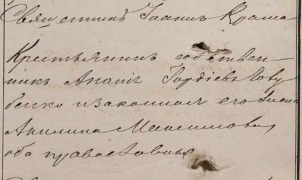 Священникъ Іоаннъ Крама
Крестьянинъ собствен
никъ Ананій Гордіевъ
бенко и законная его жена
Акилина Максимова
оба православные